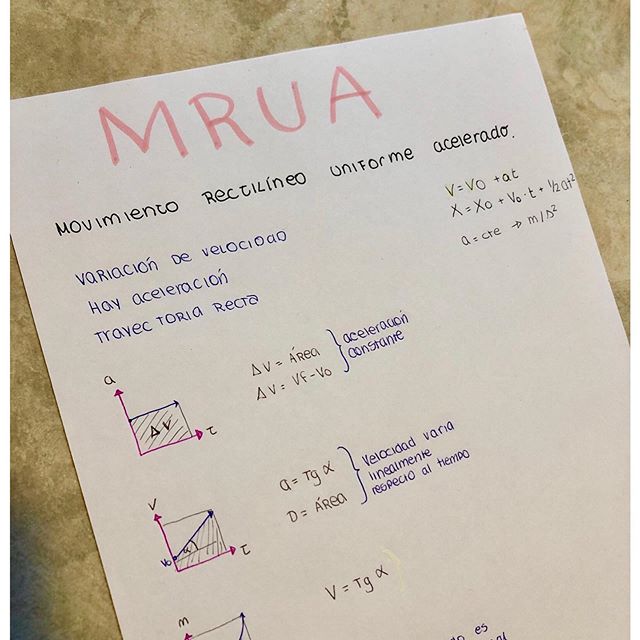 MRUA
MOVIMIENTO RECTILÍNEO UNIFORME acelerado.
V=VO +at
X=XO + VO·t + 1/2 at²
a=cte → m/s²
VARIACIÓN DE VELOCIDAD
HAY aceleración
TRAYECTORIA RECTA
a
ΔV
t
ΔV = ÁREA
ΔV = VF-VO
aceleración
constante
V
VO
α
t
a = Tg α
D = ÁREA
Velocidad varia
linealmente
respecto al tiempo
m
V = Tg α
es